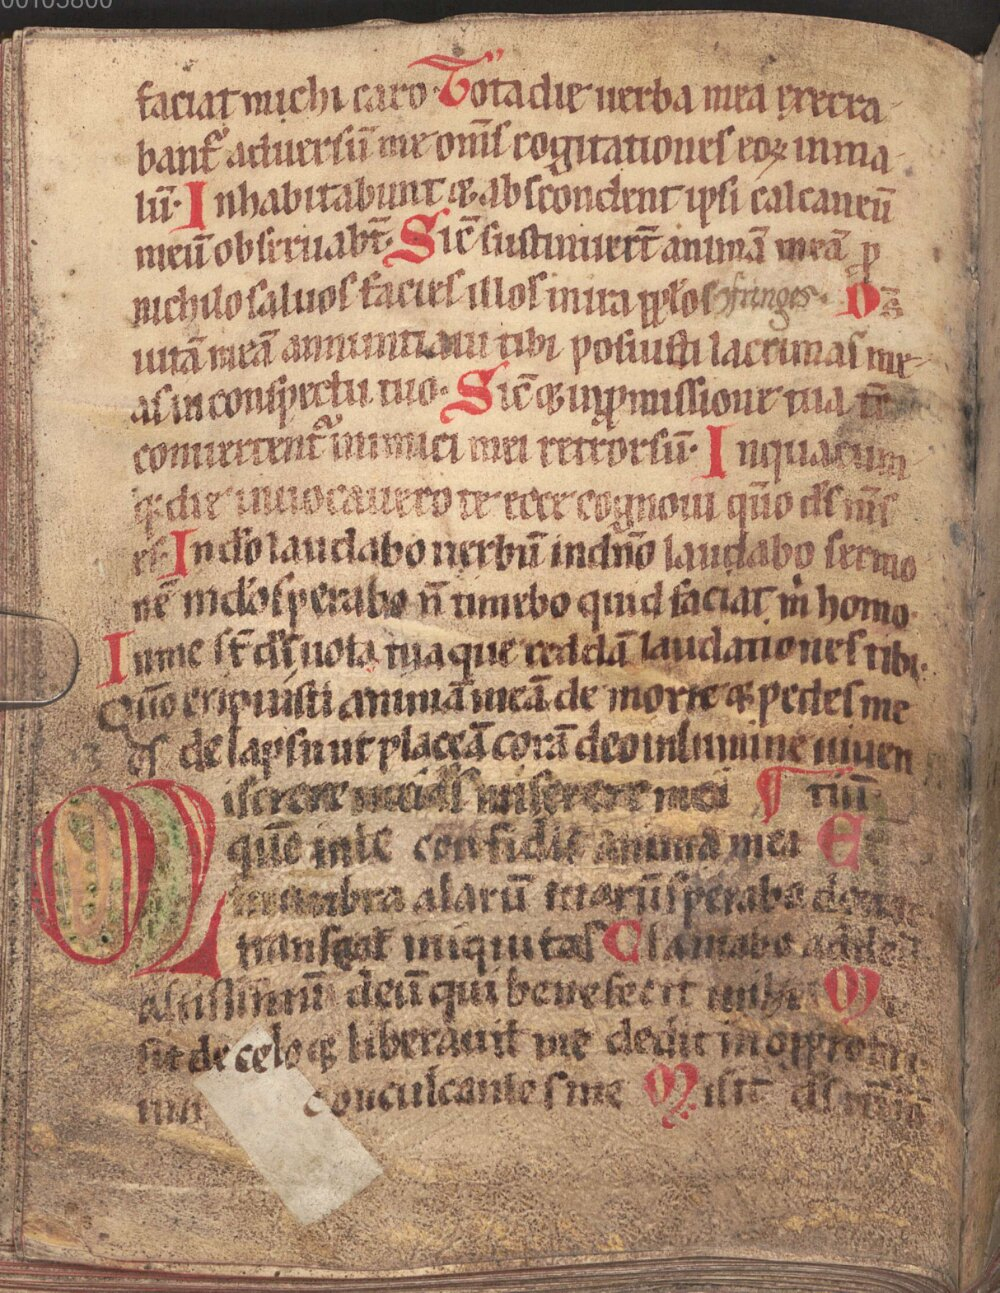 00105800
faciat michi caro Tota die uerba mea execra
bant᷑ aduersū me om̄s cogitationes eoꝝ in ma
lū· Inhabitabunt ⁊ abscondent ipsi calcaneū
meū obseruabt̄· Sic̄ sustinuert̄ animā meā ꝑ
nichilo saluos facies illos in ira pplos ꝯfringes· Ds̄
uitā meā annuntiaui tibi posuisti lacrimas me
as in conspectu tuo· Sic̄ ⁊ in ꝓmissione tua tc̄
conuertent᷑ inimici mei retrorsū· Inquacum
q; die inuocauero te ecce cognoui qm̄o ds̄ ms̄
es· In do͞ laudabo uerbū in dn̄o laudabo sermo
nē in do͞ sperabo n̄ timebo quid faciat m̍ homo·
In me st̄ ds̄ uota tua que reddā laudationes tibi·
Qūo eripuisti animā meā de morte ⁊ pedes me
os de lapsu ut placeā corā deo in lumine uiuen
iserere mei ds̄ miserere mei ¶ tiū
M quō in te confidit anima mea E
t in umbra alarū tuarū sperabo donec
transeat iniquitas Clamabo ad deū
altissimū deū qui benefecit mihi M
sit de celo ⁊ liberauit me dedit in opprobri
um conculcantes me Misit ds̄